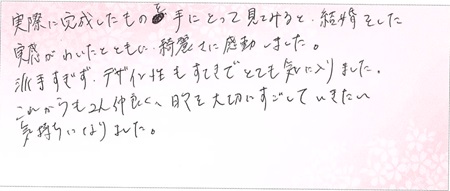 実際に完成したもの手にとって見てみると、結婚をした
実感がわいたとともに、綺麗さに感動しました。
派手すぎず、デザイン性もすてきでとても気に入りました。
これからも2人仲良く、日々を大切にすごしていきたい
気持ちになりました。